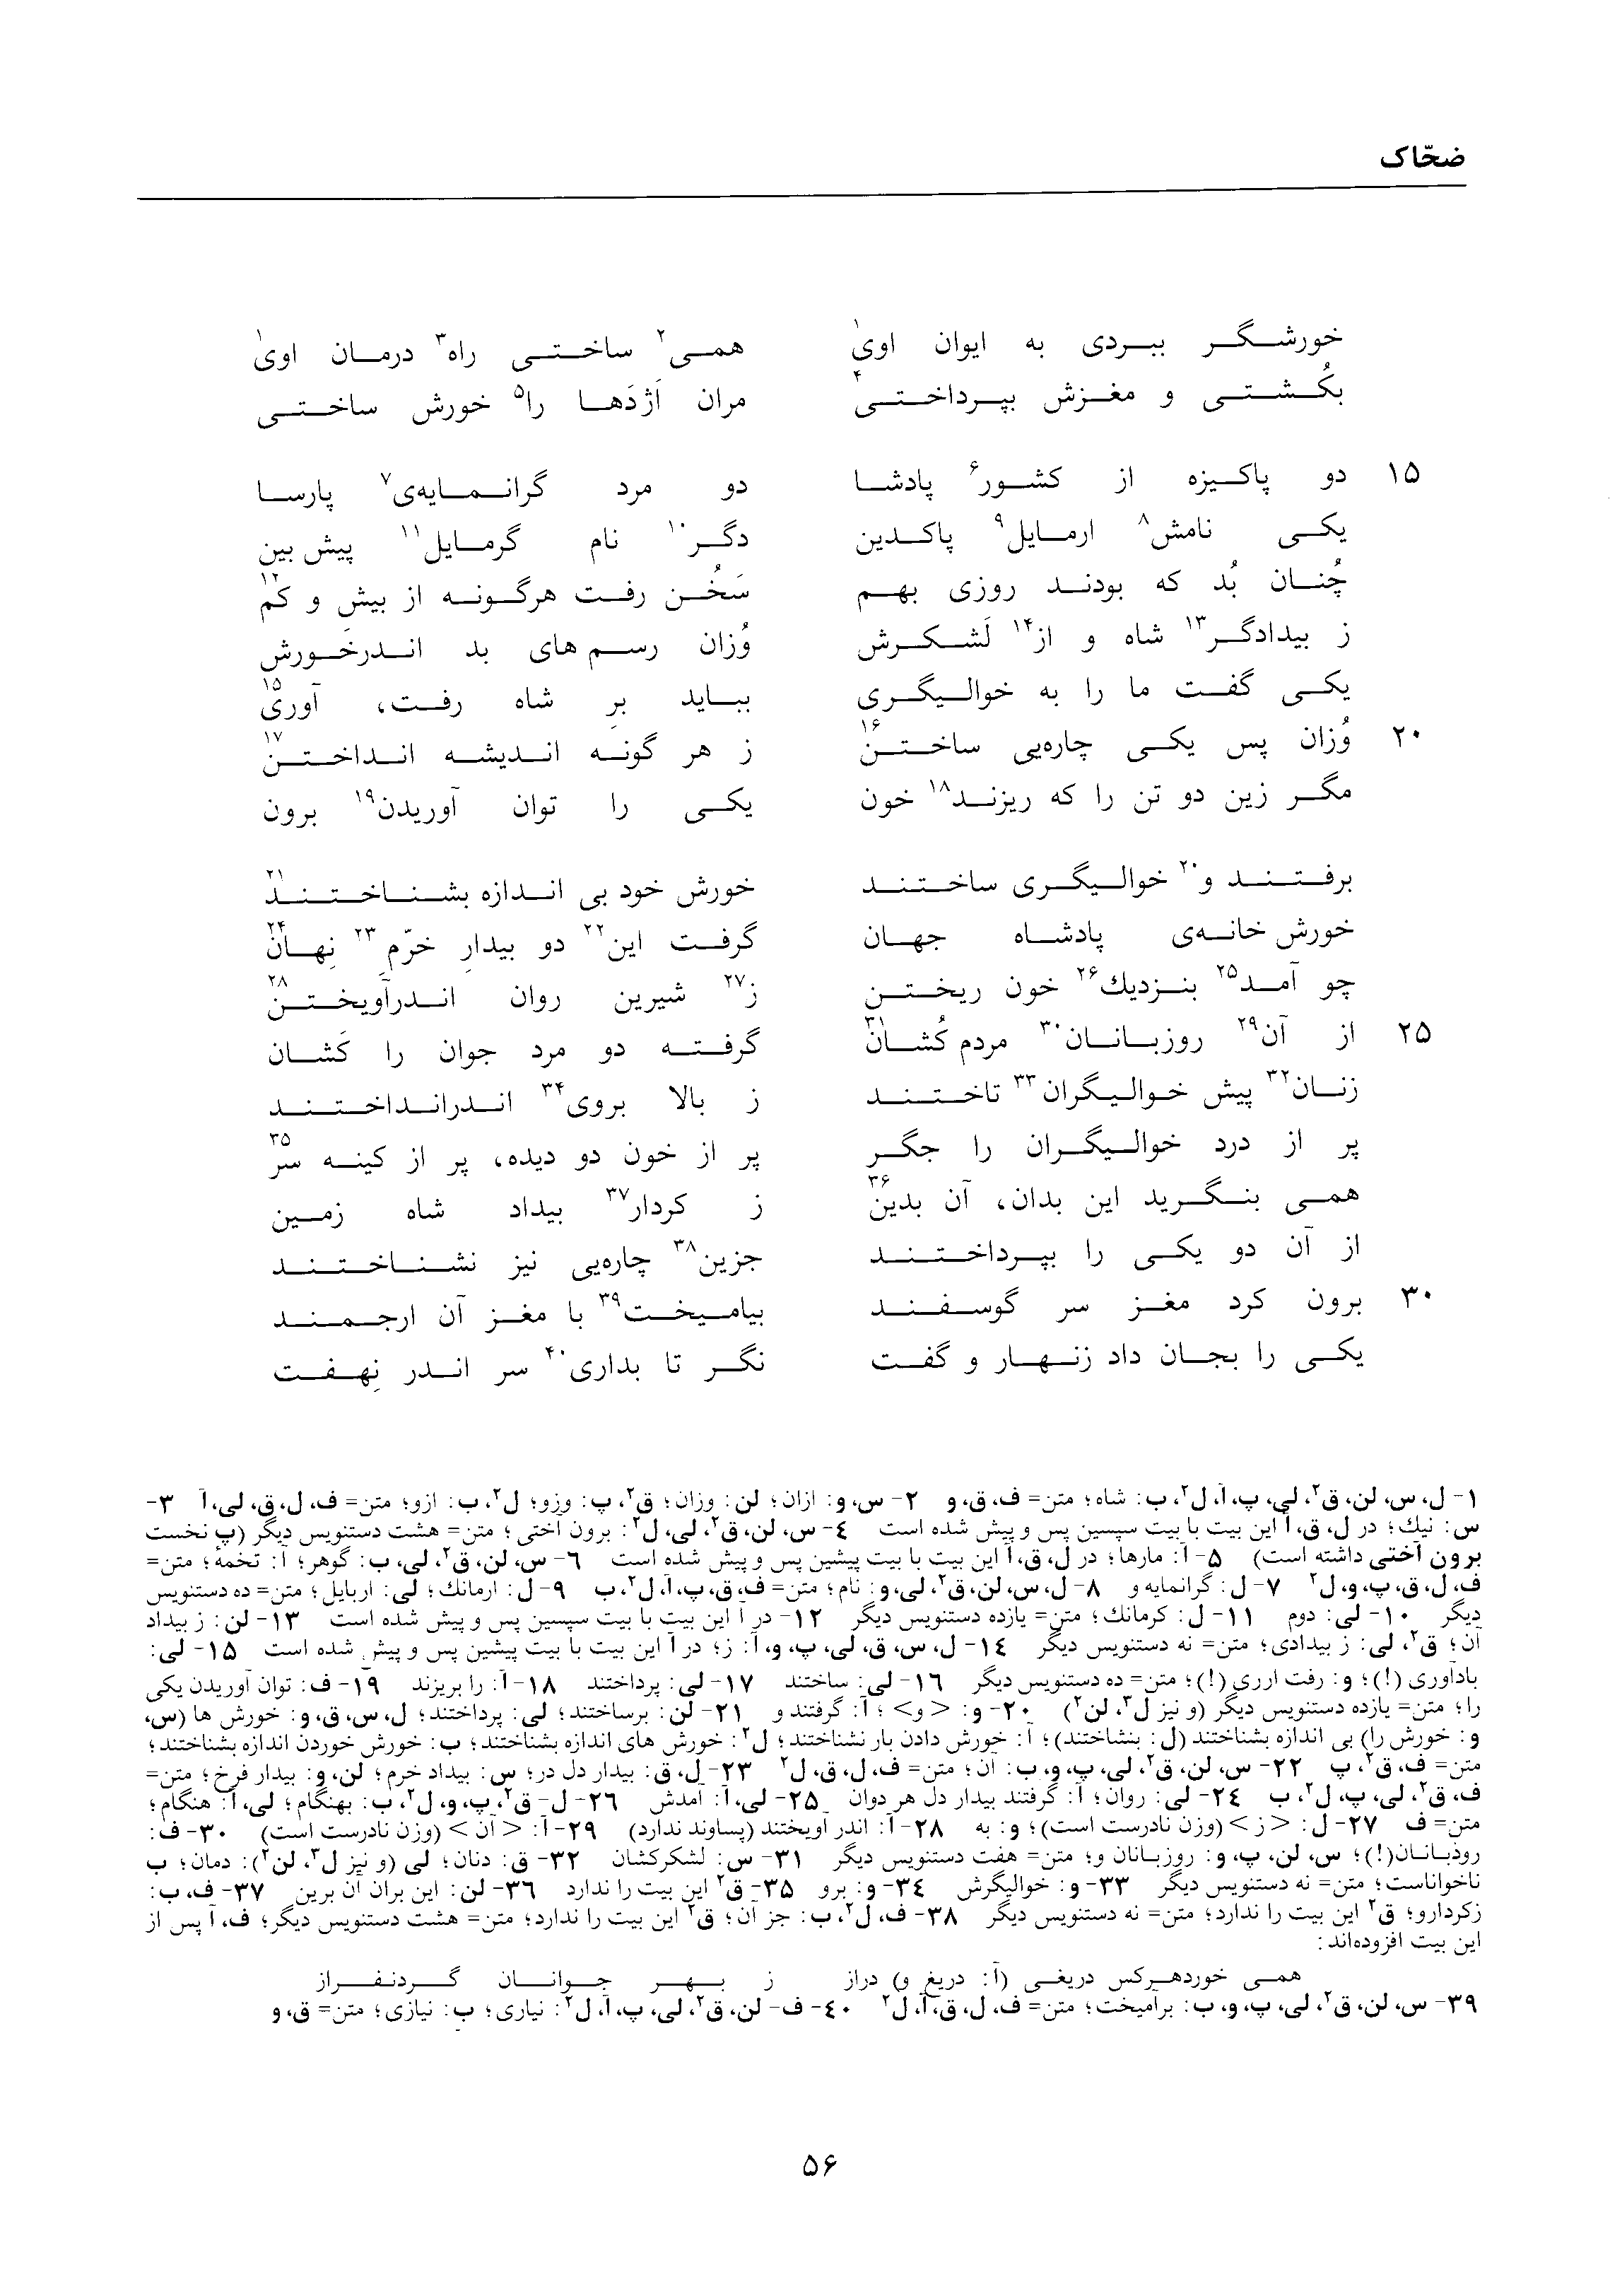 ضحّاک
خورشگر ببردی به ایوان اوی۱ همی۲ ساختی راه۳ درمان اوی۱
بکُشتی و مغزش بپرداختی۴ مران اَژدَها را۵ خورش ساختی
۱۵ دو پاکیزه از کشور۶ پادشا دو مرد گرانمایه‌ی۷ پارسا
یکی نامش۸ ارمایل۹ پاکدین دگر۱۰ نام گرمایل۱۱ پیش بین
چُنان بُد که بودند روزی بهم سَخُن رفت هرگونه از بیش و کم۱۲
ز بیدادگر۱۳ شاه و از۱۴ لَشکرش وُزان رسم های بد اندرخَورش
یکی گفت ما را به خوالیگری بباید برِ شاه رفت، آوری۱۵
۲۰ وُزان پس یکی چاره‌یی ساختن۱۶ ز هر گونه اندیشه انداختن۱۷
مگر زین دو تن را که ریزند۱۸ خون یکی را توان آوریدن۱۹ برون
برفتند و۲۰ خوالیگری ساختند خورش خود بی اندازه بشناختند۲۱
خورش خانه‌ی پادشاه جهان گرفت این۲۲ دو بیدارِ خرّم۲۳ نِهان۲۴
چو آمد۲۵ بنزدیك۲۶ خون ریختن ز۲۷ شیرین روان اندرآویختن۲۸
۲۵ از آن۲۹ روزبانان۳۰ مردم کُشان۳۱ گرفته دو مرد جوان را کَشان
زنان۳۲ پیش خوالیگران۳۳ تاختند ز بالا بروی۳۴ اندرانداختند
پر از درد خوالیگران را جگر پر از خون دو دیده، پر از کینه سر۳۵
همی بنگرید این بدان، آن بدین۳۶ ز کردار۳۷ بیداد شاه زمین
از آن دو یکی را بپرداختند جزین۳۸ چاره‌یی نیز نشناختند
۳۰ برون کرد مغز سر گوسفند بیامیخت۳۹ با مغز آن ارجمند
یکی را بجان داد زنهار و گفت نگر تا بداری۴۰ سر اندر نِهفت
۱- ل، س، لن، ق۲، لی، پ، آ، ل۲، ب: شاه؛ متن= ف، ق، و ۲- س، و: ازان؛ لن: وزان؛ ق۲، پ: وزو؛ ل۲، ب: ازو؛ متن= ف، ل، ق، لی، آ ۳-
س: نیك؛ در ل، ق، آ این بیت با بیت سپسین پس و پیش شده است ٤- س، لن، ق۲، لی، ل۲: برون آختی؛ متن= هشت دستنویس دیگر (پ نخست
برون آختی داشته است) ۵- آ: مارها؛ در ل، ق، آ این بیت با بیت پیشین پس و پیش شده است ٦- س، لن، ق۲، لی، ب: گوهر؛ آ: تخمه؛ متن=
ف، ل، ق، پ، و، ل۲ ۷- ل: گرانمایه و ۸- ل، س، لن، ق۲، لی، و: نام؛ متن= ف، ق، پ، آ، ل۲، ب ۹- ل: ارمانك؛ لی: اربایل؛ متن= ده دستنویس
دیگر ۱۰- لی: دوم ۱۱- ل: کرمانك؛ متن= یازده دستنویس دیگر ۱۲- در آ این بیت با بیت سپسین پس و پیش شده است ۱۳- لن: ز بیداد
آن؛ ق۲، لی: ز بیدادی؛ متن= نه دستنویس دیگر ۱٤- ل، س، ق، لی، پ، و، آ: ز؛ در آ این بیت با بیت پیشین پس و پیش شده است ۱۵- لی:
باداوری (!)؛ و: رفت ارری (!)؛ متن= ده دستنویس دیگر ۱٦- لی: ساختند ۱۷- لی: پرداختند ۱۸- آ: را بریزند ۱۹- ف: توان آوریدن یکی
را؛ متن= یازده دستنویس دیگر (و نیز ل۳، لن۲) ۲۰- و: <و>؛ آ: گرفتند و ۲۱- لن: برساختند؛ لی: پرداختند؛ ل، س، ق، و: خورش ها (س،
و: خورش را) بی اندازه بشناختند (ل: بنشاختند)؛ آ: خورش دادن بار نشناختند؛ ل۲: خورش های اندازه بشناختند؛ ب: خورش خوردن اندازه بشناختند؛
متن= ف، ق۲، پ ۲۲- س، لن، ق۲، لی، پ، و، ب: آن؛ متن= ف، ل، ق، ل۲ ۲۳- ل، ق: بیدار دل در؛ س: بیداد خرم؛ لن، و: بیدار فرخ؛ متن=
ف، ق۲، لی، پ، ل۲، ب ۲٤- لی: روان؛ آ: گرفتند بیدار دل هر دوان ۲۵- لی، آ: آمدش ۲٦- ل- ق۲، پ، و، ل۲، ب: بهنگام؛ لی، آ: هنگام؛
متن= ف ۲۷- ل: <ز> (وزن نادرست است)؛ و: به ۲۸- آ: اندر آویختند (پساوند ندارد) ۲۹- آ: <آن> (وزن نادرست است) ۳۰- ف:
رودبانان(!)؛ س، لن، پ، و: روزبانان و؛ متن= هفت دستنویس دیگر ۳۱- س: لشکرکشان ۳۲- ق: دنان؛ لی (و نیز ل۳، لن۲): دمان؛ ب
ناخواناست؛ متن= نه دستنویس دیگر ۳۳- و: خوالیگرش ۳٤- و: برو ۳۵- ق۲ این بیت را ندارد ۳٦- لن: این بران آن برین ۳۷- ف، ب:
زکردارو؛ ق۲ این بیت را ندارد؛ متن= نه دستنویس دیگر ۳۸- ف، ل۲، ب: جز آن؛ ق۲ این بیت را ندارد؛ متن= هشت دستنویس دیگر؛ ف، آ پس از
این بیت افزوده‌اند:
همی خوردهرکس دریغی (آ: دریغ و) دراز ز بهر جوانان گردنفراز
۳۹- س، لن، ق۲، لی، پ، و، ب: برآمیخت؛ متن= ف، ل، ق، آ، ل۲ ٤۰- ف- لن، ق۲، لی، پ، آ، ل۲: نیاری؛ ب: نیازی؛ متن= ق، و
۵۶